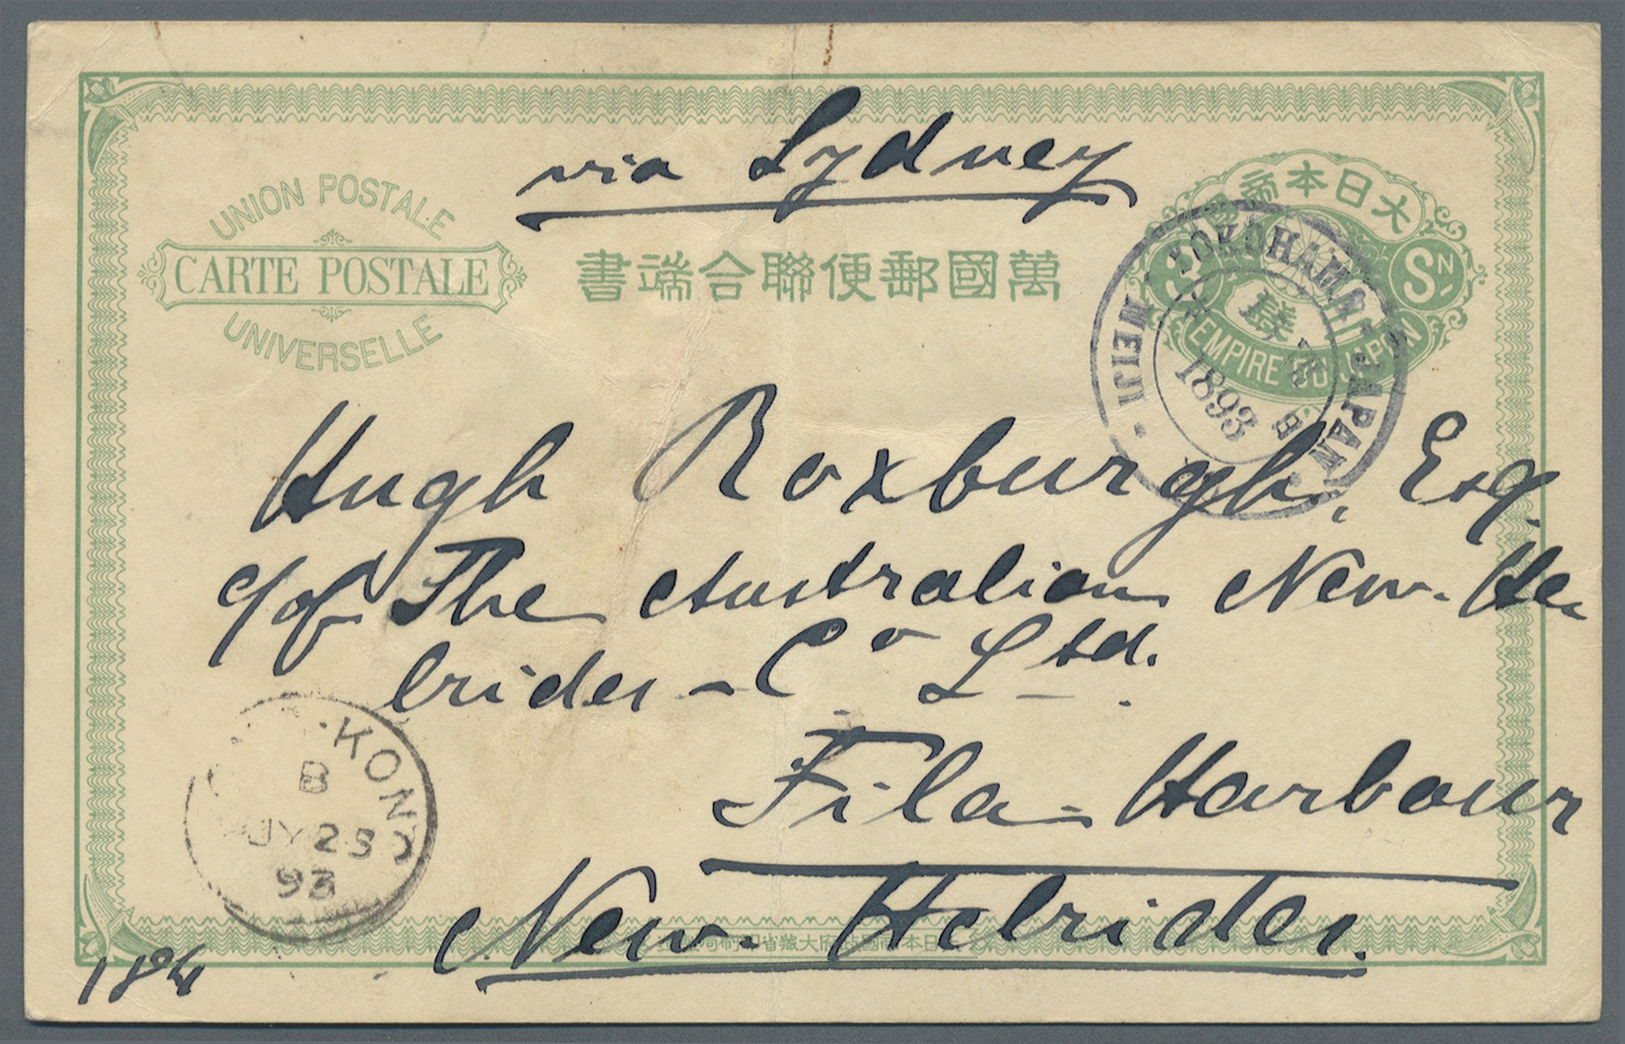 via Sydney
UNION POSTALE
CARTE POSTALE
UNIVERSELLE
萬國郵便聯合端書
大日本帝國
3 Sn
EMPIRE DU JAPON
YOKOHAMA JAPAN
MEIJI
1893
Hugh Roxburgh, Esq.
c/of The Australian New-He
brides-Co Ltd.
Fila-Harbour
New-Hebrides.
KONG
B
JY 25
93
184